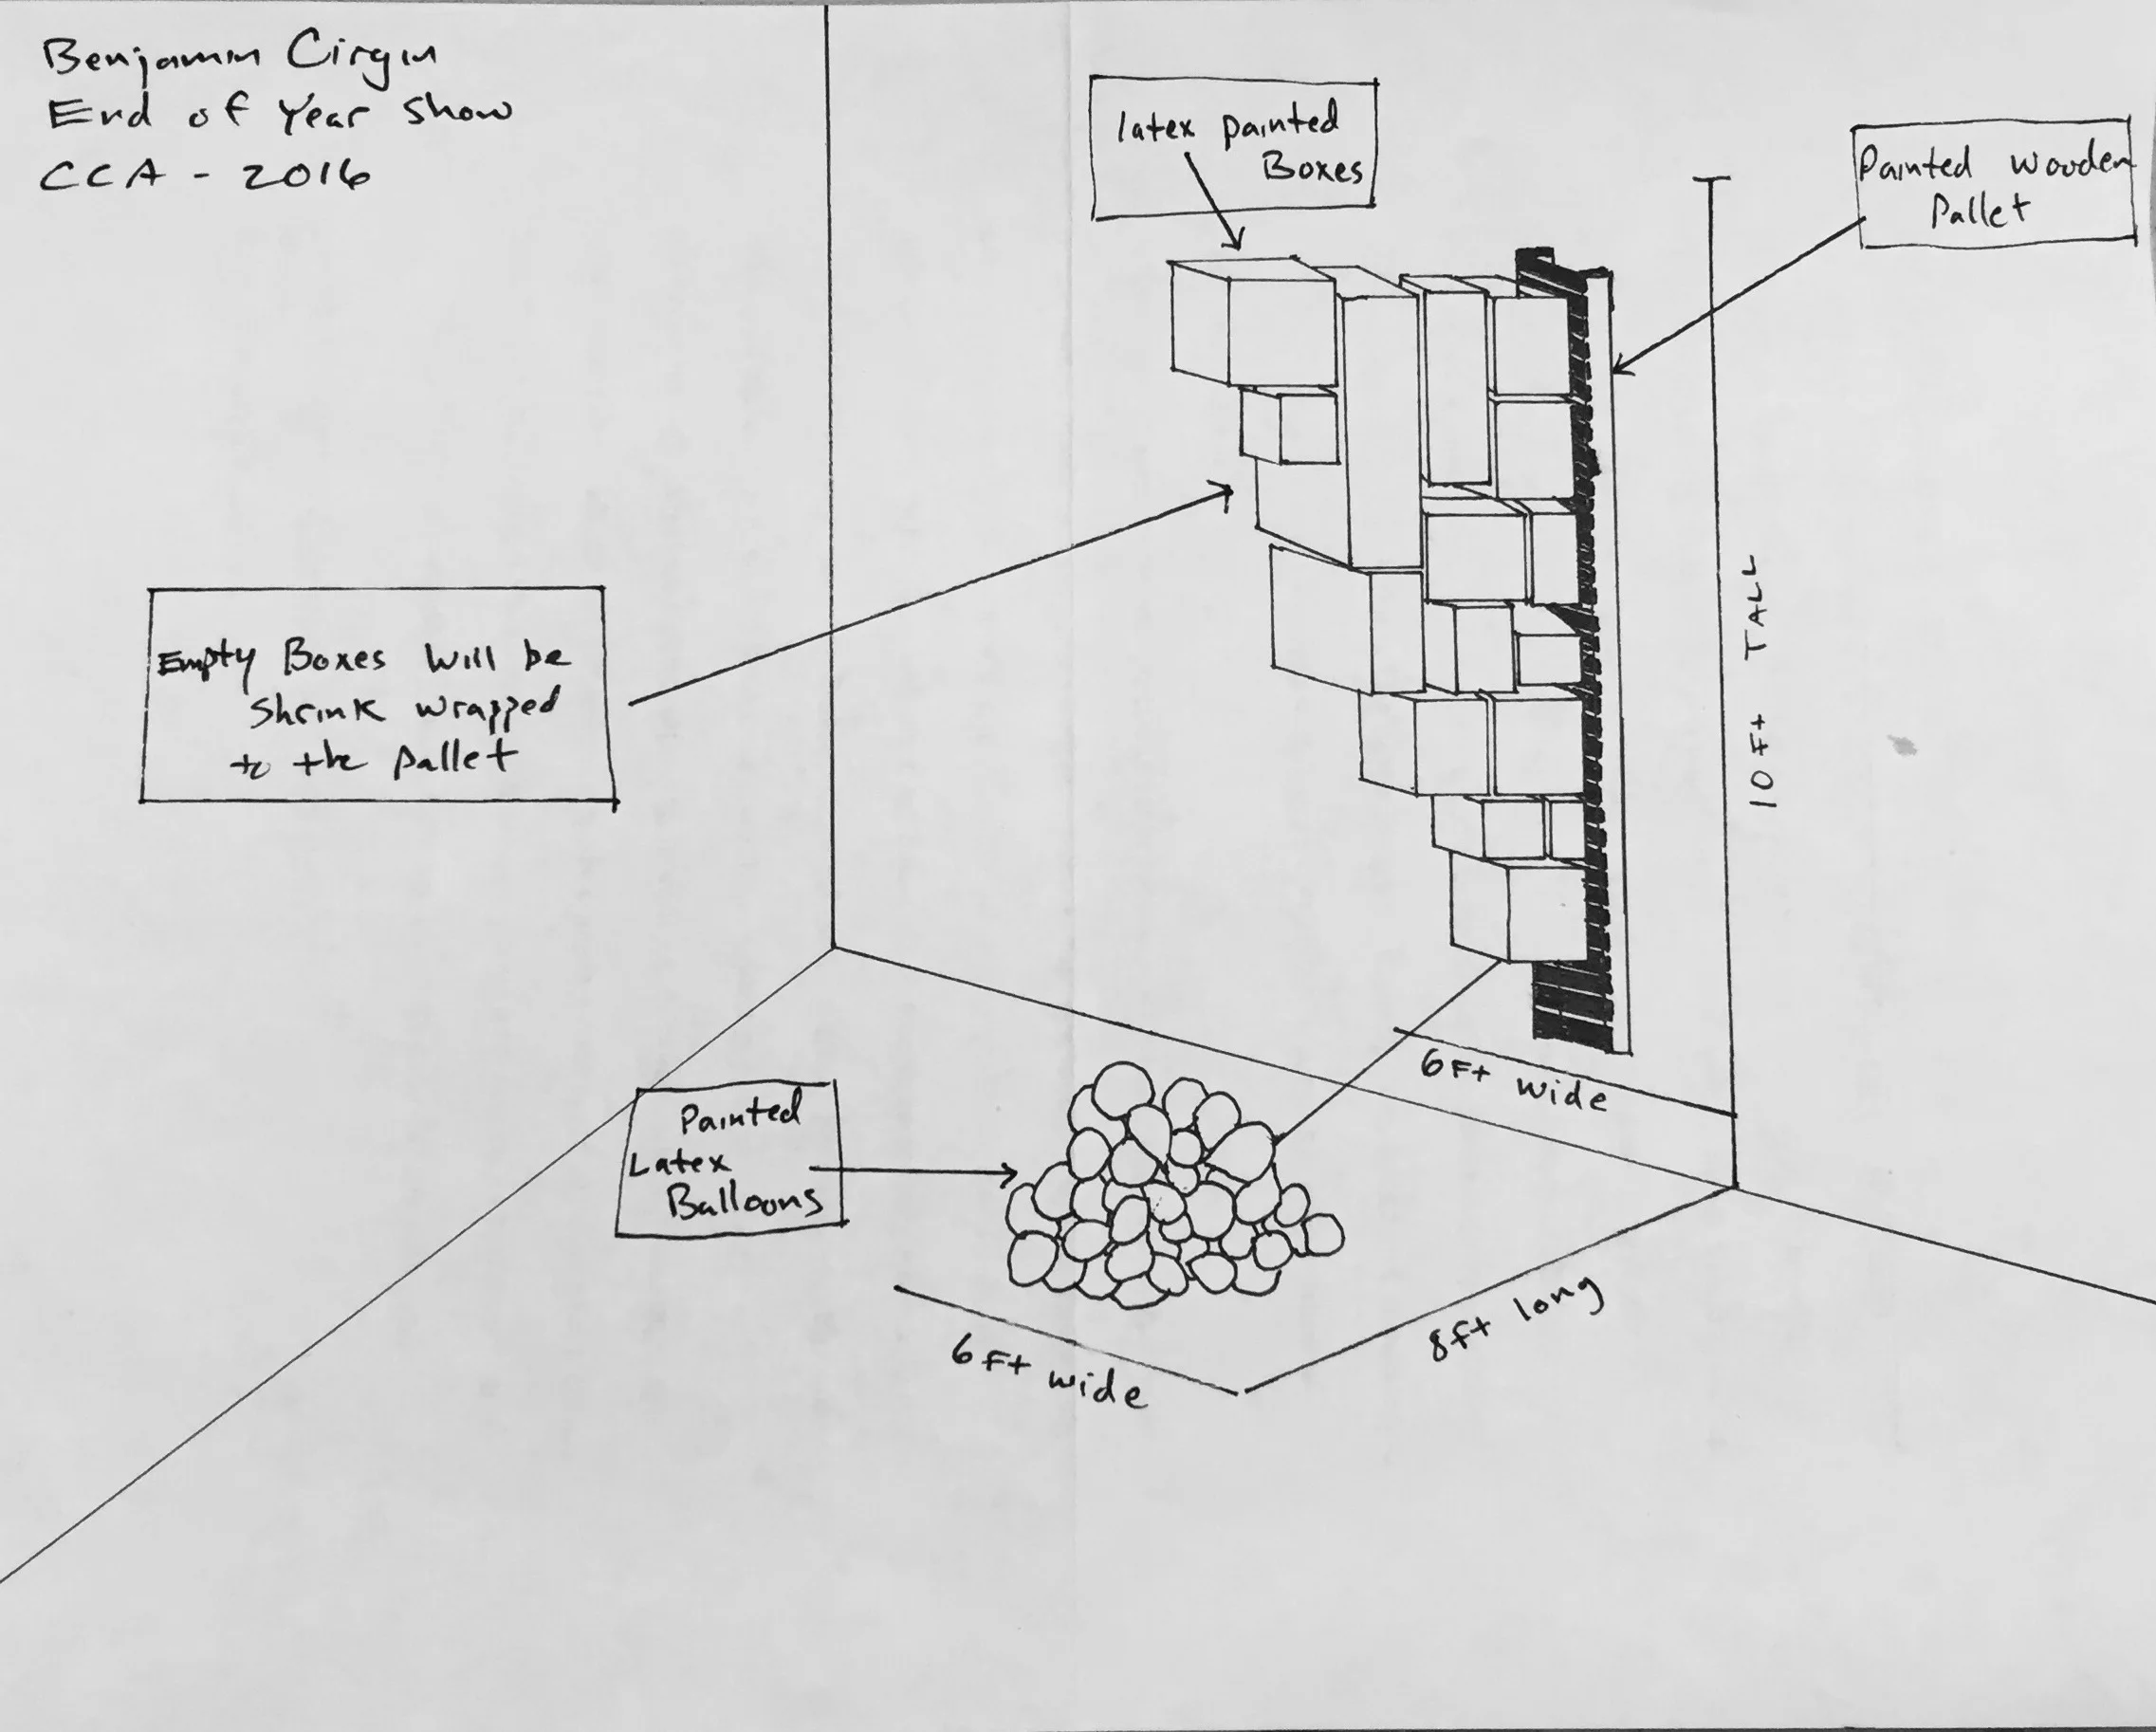 Benjamin Cirgin
End of Year Show
CCA - 2016
latex painted
Boxes
Painted Wooden
Pallet
Empty Boxes Will be
Shrink wrapped
to the pallet
10 Ft TALL
6 Ft wide
Painted
Latex
Balloons
6 Ft wide
8ft long